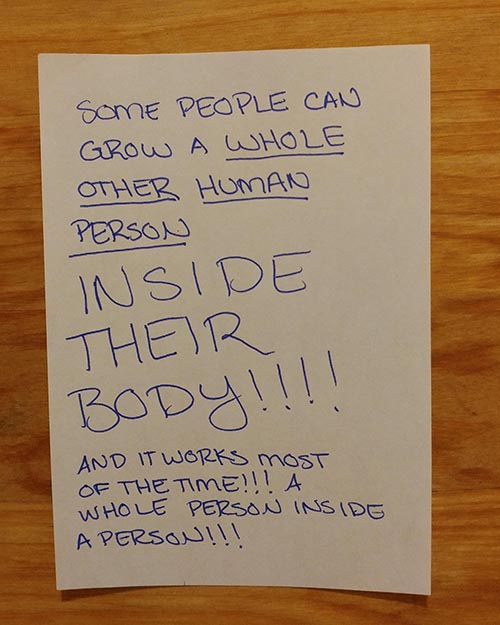 SOME PEOPLE CAN
GROW A WHOLE
OTHER HUMAN
PERSON
INSIDE
THEIR
BODY!!!!
AND IT WORKS MOST
OF THE TIME!!! A
WHOLE PERSON INSIDE
A PERSON!!!